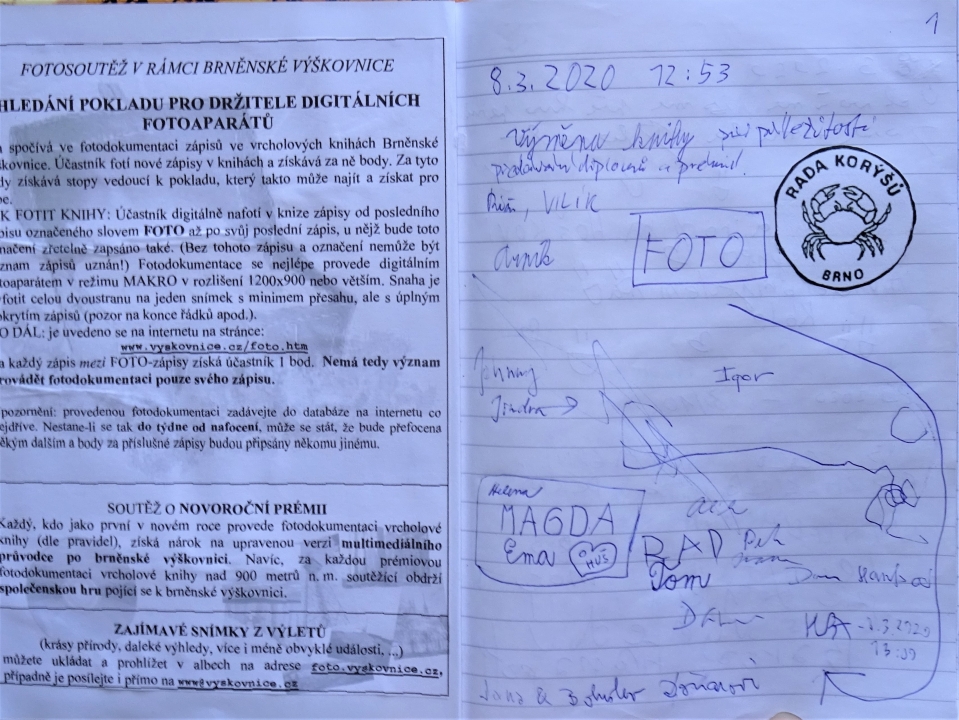 FOTOSOUTĚŽ V RÁMCI BRNĚNSKÉ VÝŠKOVNICE
HLEDÁNÍ POKLADU PRO DRŽITELE DIGITÁLNÍCH
FOTOAPARÁTŮ
spočívá ve fotodokumentaci zápisů ve vrcholových knihách Brněnské
škovnice. Účastník fotí nové zápisy v knihách a získává za ně body. Za tyto
dy získává stopy vedoucí k pokladu, který takto může najít a získat pro
be.
K FOTIT KNIHY: Účastník digitálně nafotí v knize zápisy od posledního
pisu označeného slovem FOTO až po svůj poslední zápis, u nějž bude toto
načení zřetelně zapsáno také. (Bez tohoto zápisu a označení nemůže být
znam zápisů uznán!) Fotodokumentace se nejlépe provede digitálním
toaparátem v režimu MAKRO v rozlišení 1200x900 nebo větším. Snaha je
fotit celou dvoustranu na jeden snímek s minimem přesahu, ale s úplným
okrytím zápisů (pozor na konce řádků apod.).
O DÁL: je uvedeno se na internetu na stránce:
www.vyskovnice.cz/foto.htm
a každý zápis mezi FOTO-zápisy získá účastník 1 bod. Nemá tedy význam
rovádět fotodokumentaci pouze svého zápisu.
pozornění: provedenou fotodokumentaci zadávejte do databáze na internetu co
ejdříve. Nestane-li se tak do týdne od nafocení, může se stát, že bude přefocena
ěkým dalším a body za příslušné zápisy budou připsány někomu jinému.
SOUTĚŽ O NOVOROČNÍ PRÉMII
Každý, kdo jako první v novém roce provede fotodokumentaci vrcholové
knihy (dle pravidel), získá nárok na upravenou verzi multimediálního
průvodce po brněnské výškovnici. Navíc, za každou prémiovou
fotodokumentaci vrcholové knihy nad 900 metrů n. m. soutěžící obdrží
společenskou hru pojící se k brněnské výškovnici.
ZAJÍMAVÉ SNÍMKY Z VÝLETŮ
(krásy přírody, daleké výhledy, více i méně obvyklé události, ...)
můžete ukládat a prohlížet v albech na adrese foto.vyskovnice.cz,
případně je posílejte i přímo na www@vyskovnice.cz
1
8.3.2020 12:53
Výměna knihy při příležitosti
předávání diplomů a prémií.
VILÍK
FOTO
RADA KORÝŠŮ
BRNO
Johnny
Igor
Jindra
Helena
MAGDA
Ema
HUŠ
RAD
Petr
Tom
Dan
13:09
Jana & Bohuslav